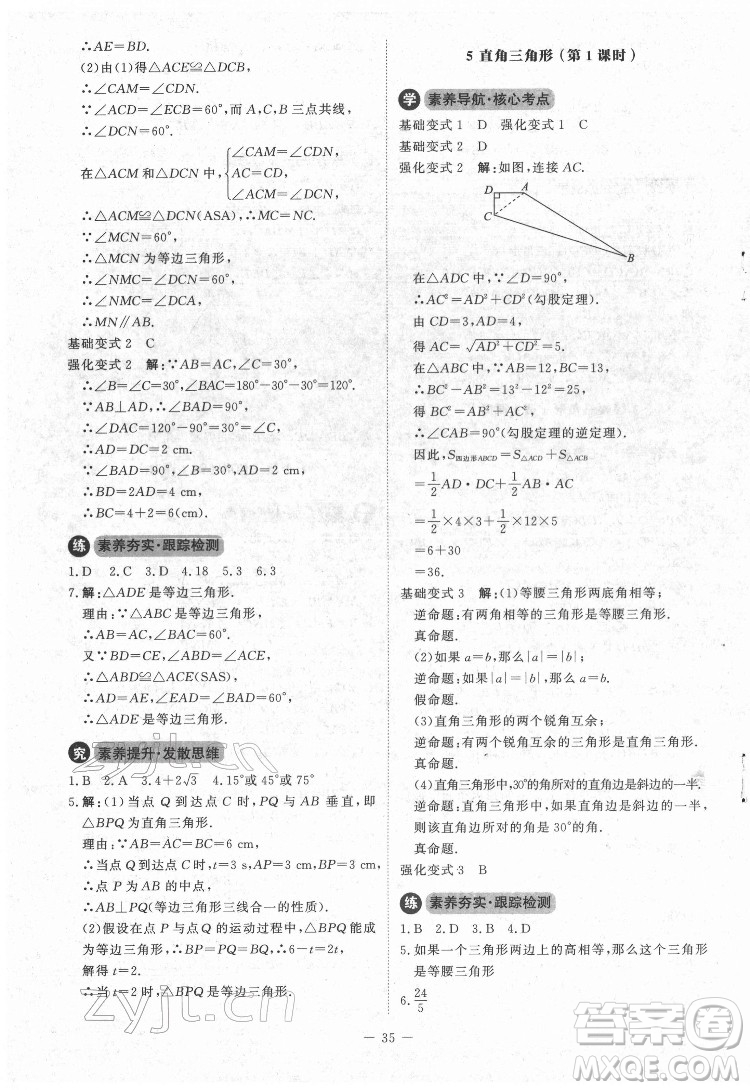 ∴AE=BD.
(2)由(1)得△ACE≌△DCB,
∴∠CAM=∠CDN.
∵∠ACD=∠ECB=60°,而A,C,B三点共线,
∴∠DCN=60°.
在△ACM和△DCN中,{∠CAM=∠CDN, AC=CD, ∠ACM=∠DCN,
∴△ACM≌△DCN(ASA),∴MC=NC.
∵∠MCN=60°,
∴△MCN为等边三角形,
∴∠NMC=∠DCN=60°,
∴∠NMC=∠DCA,
∴MN∥AB.
基础变式2 C
强化变式2 解:∵AB=AC,∠C=30°,
∴∠B=∠C=30°,∴∠BAC=180°-30°-30°=120°.
∵AB⊥AD,∴∠BAD=90°,
∴∠DAC=120°-90°=30°=∠C,
∴AD=DC=2 cm.
∵∠BAD=90°,∠B=30°,
∴BD=2AD=2×2=4(cm),
∴BC=4+2=6(cm).
练 素养夯实·跟踪检测
1.D 2.C 3.D 4.18 5.3 6.3
7.解:△ADE是等边三角形.
理由:∵△ABC是等边三角形,
∴AB=AC,∠BAC=60°.
又∵BD=CE,∠ABD=∠ACE,
∴△ABD≌△ACE(SAS),
∴AD=AE,∠EAD=∠BAC=60°,
∴△ADE是等边三角形.
究 素养提升·发散思维
1.B 2.A 3.4+2√3 4.15°或45°或75°
5.解:(1)当点Q到达点C时,PQ与AB垂直,即
△BPQ为直角三角形.
理由:∵AB=AC=BC=6 cm,
∴当点Q到达点C时,t=3 s,AP=3 cm,
∴点P为AB的中点,
∴AB⊥PQ(等边三角形三线合一的性质).
(2)假设在点P与点Q的运动过程中,△BPQ能成
为等边三角形,则BQ=BP=PQ,∴6-t=2t,
解得t=2.
∴当t=2时,△BPQ是等边三角形.
5 直角三角形(第1课时)
学 素养导航·核心考点
基础变式1 D 强化变式1 C
基础变式2 D
强化变式2 解:如图,连接AC.
D A
C
B
在△ADC中,∵∠D=90°,
∴AC²=AD²+CD²(勾股定理).
由CD=3,AD=4,
得AC=√AD²+CD²=5.
在△CAB中,∵AC=5,AB=12,BC=13,
由5²+12²=13²,
得BC²=AB²+AC²,
∴∠CAB=90°(勾股定理的逆定理).
因此,S四边形ABCD=S△ADC+S△ACB
=1/2AD·DC+1/2AC·AB
=1/2×4×3+1/2×12×5
=6+30
=36.
基础变式3 解:(1)等腰三角形两底角相等;
逆命题:有两角相等的三角形是等腰三角形.
真命题.
(2)如果a=b,那么|a|=|b|;
逆命题:如果|a|=|b|,那么a=b.
假命题.
(3)直角三角形的两个锐角互余;
逆命题:有两个锐角互余的三角形是直角三角形.
真命题.
(4)直角三角形中,30°的角所对的直角边是斜边的一半.
逆命题:直角三角形中,如果直角边是斜边的一半,
则该直角边所对的角是30°的角.
真命题.
强化变式3 B
练 素养夯实·跟踪检测
1.B 2.D 3.B 4.D
5.如果一个三角形两边上的高相等,那么这个三角形
是等腰三角形
6.24/5
— 35 —
zyjl.cn
zyjl.cn
答案圈
MXQE.COM